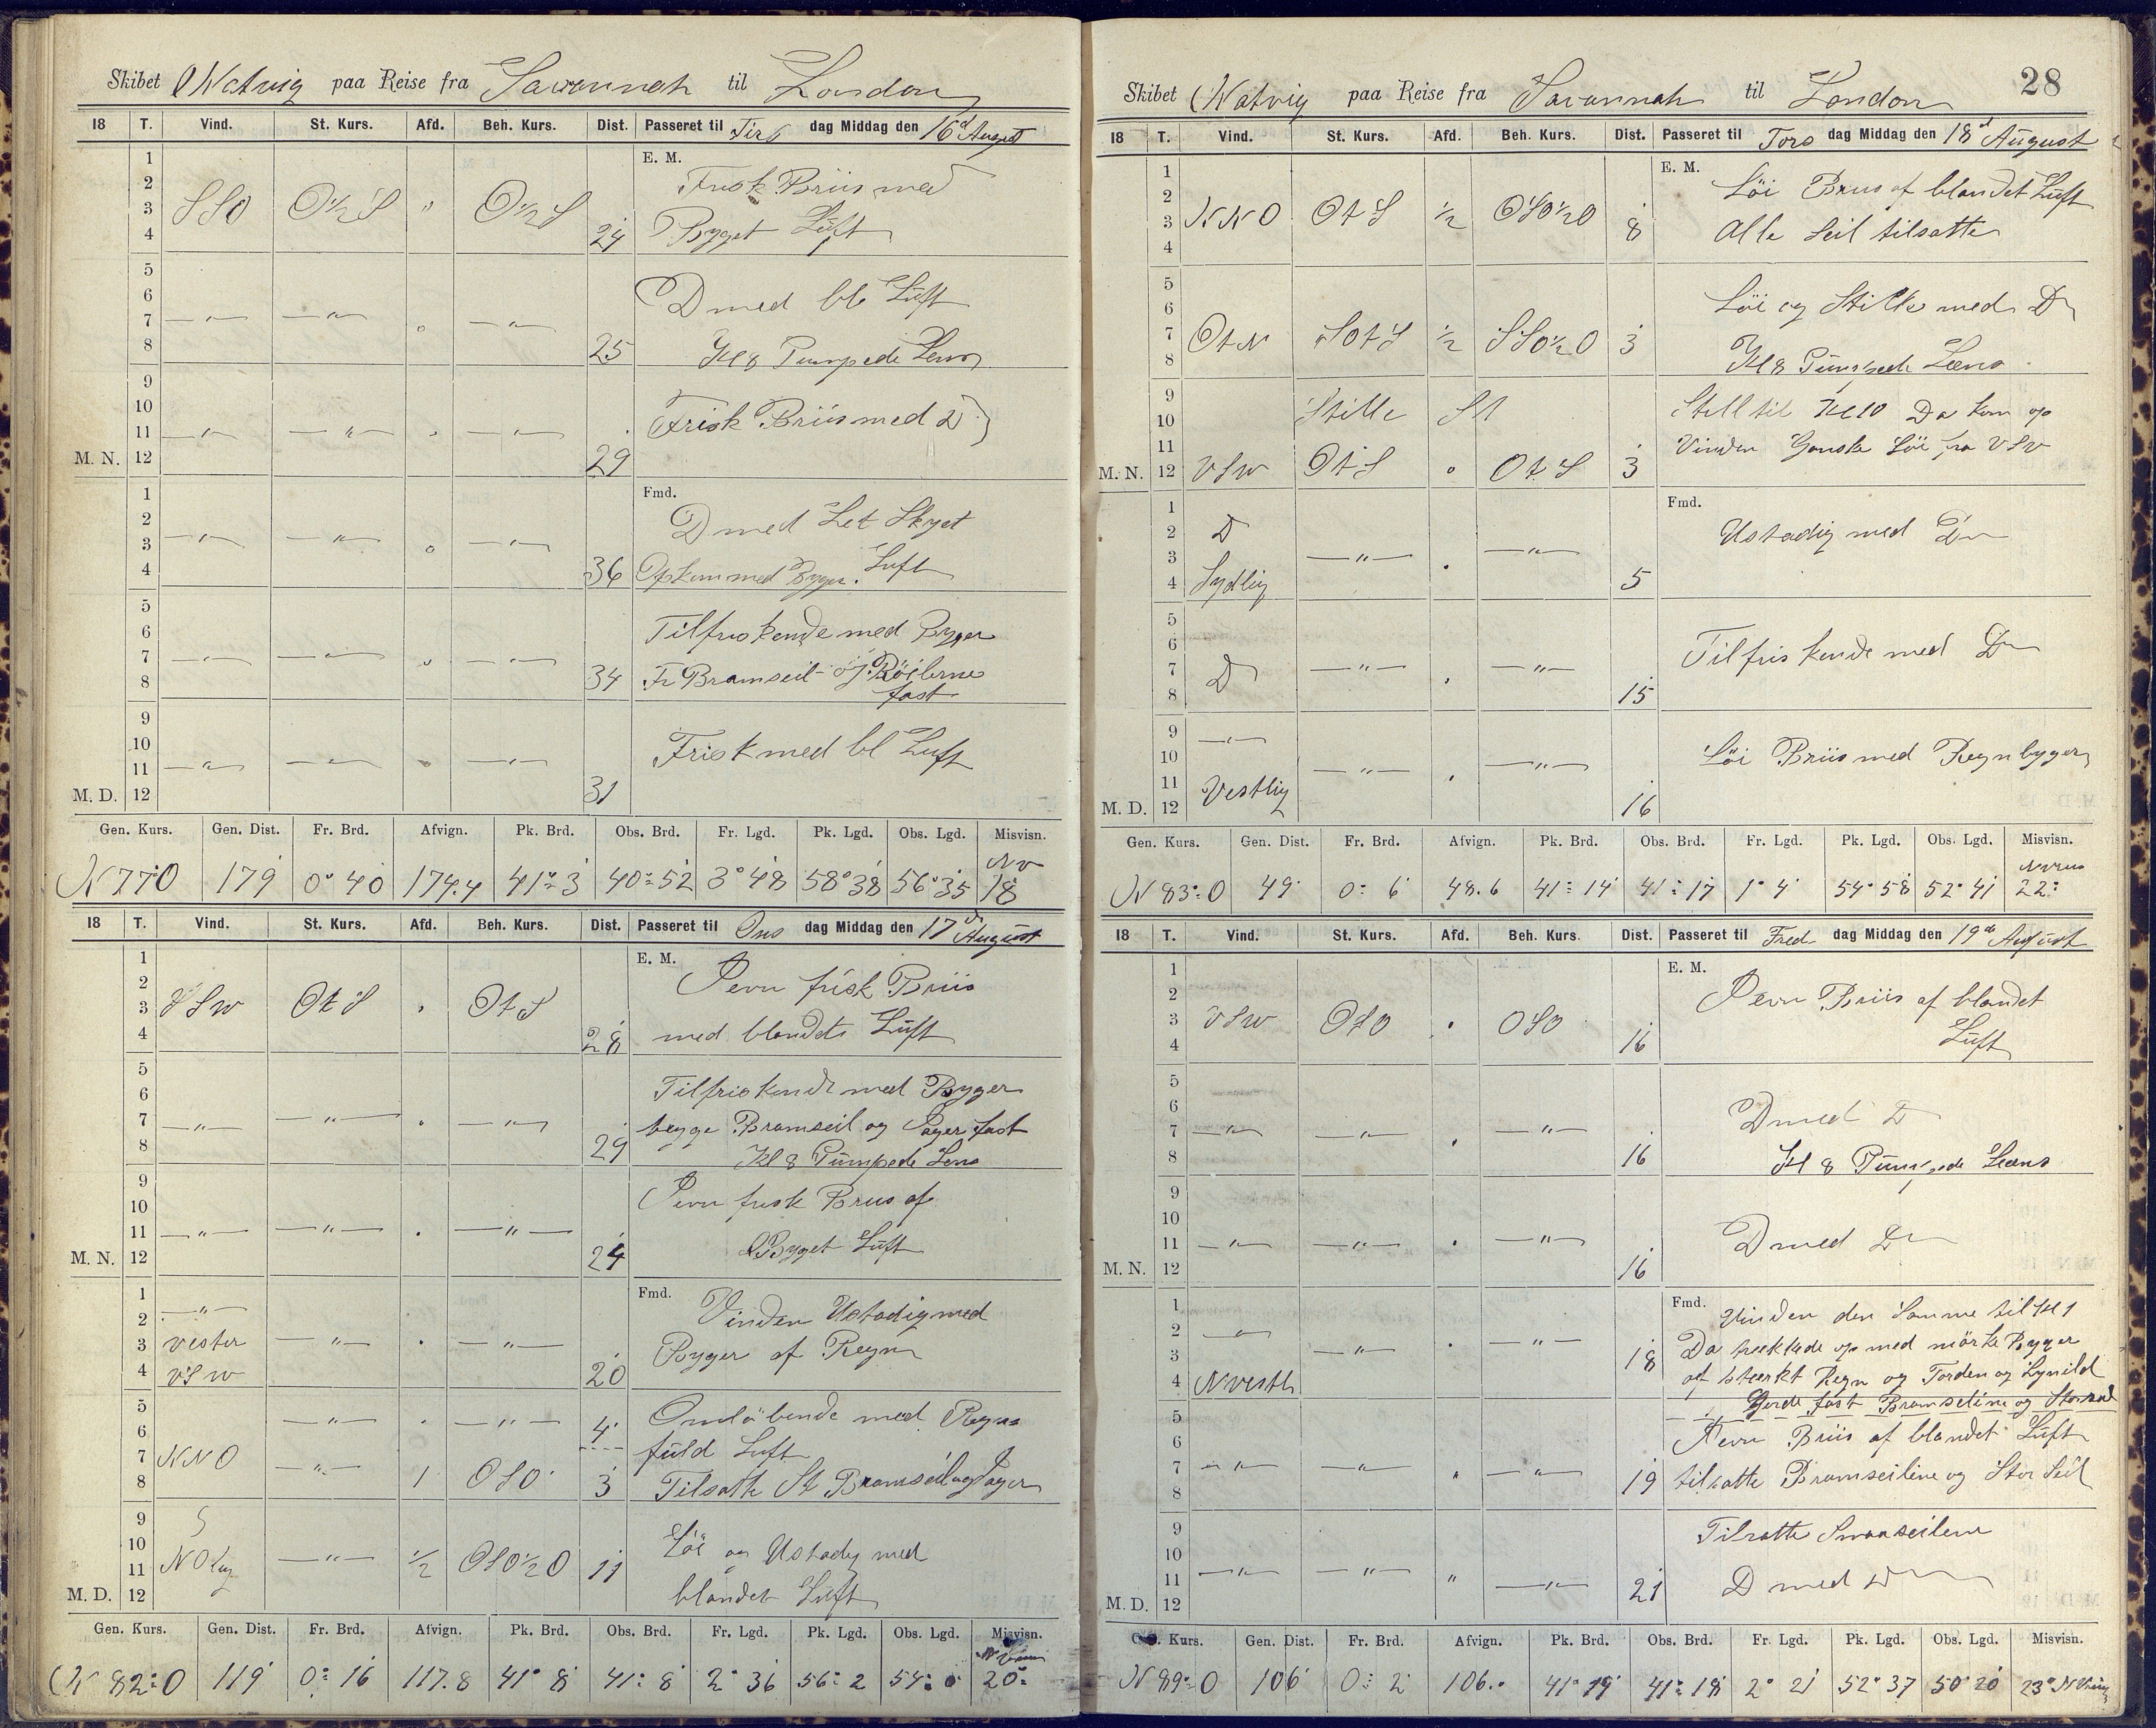 Skibet Natvig paa Reise fra Savannah til London
18 T. Vind. St. Kurs. Afd. Beh. Kurs. Dist. Passeret til Tirs dag Middag den 16d August
1 E. M.
2 Frisk Briis med
3 SSO O½S " O½S
4 24 Byget Luft
5
6 D med bl Luft
7 —"— —"— " —"—
8 25 Kl 8 Pumpede Lens
9
10 Frisk Briis med D
11 —"— —"— " —"—
M. N. 12 29
1 Fmd.
2 D med Let Skyet
3 —"— —"— " —"— Luft
4 36 Opkom med Byger.
5
6 Tilfriskende med Byger
7 —"— —"— " —"—
8 34 Fr Bramseil og Röilerne
fast
9
10 Frisk med bl Luft
11 —"— —"— " —"—
M. D. 12 31
Gen. Kurs. Gen. Dist. Fr. Brd. Afvign. Pk. Brd. Obs. Brd. Fr. Lgd. Pk. Lgd. Obs. Lgd. Misvisn.
N 77 O 179 0° 40 174.4 41° 3 40° 52 3° 48 58° 38 56° 35 NV 18
18 T. Vind. St. Kurs. Afd. Beh. Kurs. Dist. Passeret til Ons dag Middag den 17d August
1 E. M.
2 Jevn frisk Briis
3 VSW OtS " OtS
4 28 med blandet Luft
5
6 Tilfriskende med Byger
7 —"— —"— " —"— begge Bramseil og Jager fast
8 29 Kl 8 Pumpede Lens
9
10 Jevn frisk Briis af
11 —"— —"— " —"—
M. N. 12 24 Byget Luft
1 Fmd.
2 —"— Vinden Ustadig med
3 Vester —"— " —"—
4 VSW 20 Byger af Regn
5 —"— " —"— 4 Omløbende med Regn
6 fuld Luft
7 NNO —"—
8 1 OSO 3 Tilsatte St Bramseil og Jager
9
10 Löi og Ustadig med
11 NOlig —"— ½ OSO½O 11
M. D. 12 blandet Luft
Gen. Kurs. Gen. Dist. Fr. Brd. Afvign. Pk. Brd. Obs. Brd. Fr. Lgd. Pk. Lgd. Obs. Lgd. Misvisn.
N 82° O 119 0° 16 117.8 41° 8 41° 8 2° 36 56° 2 54° 0 20°
28
Skibet Natvig paa Reise fra Savannah til London
18 T. Vind. St. Kurs. Afd. Beh. Kurs. Dist. Passeret til Tors dag Middag den 18d August
1 E. M.
2 Löi Briis af blandet Luft
3 NNO OtS ½ OSO½O
4 8 Alle Seil tilsatte
5
6 Löi og Stille med D
7 OtN SOtS ½ SSO½O 3
8 Kl 8 Pumpede Læns
9
10 Stille St Still til Kl 10 Da kom op
11 Vinden Ganske Löi fra VSV
M. N. 12 VSW OtS " OtS 3
1 Fmd.
2 D Ustadig med D
3 —"— " —"—
4 Sydlig 5
5
6 Tilfriskende med D
7 D —"— " —"—
8 15
9 —"—
10 Löi Briis med Regnbyger
11 —"— " —"—
M. D. 12 Vestlig 16
Gen. Kurs. Gen. Dist. Fr. Brd. Afvign. Pk. Brd. Obs. Brd. Fr. Lgd. Pk. Lgd. Obs. Lgd. Misvisn.
N 83° O 49 0° 6 48.6 41° 14 41° 17 1° 4 54° 58 52° 41 22°
18 T. Vind. St. Kurs. Afd. Beh. Kurs. Dist. Passeret til Fred dag Middag den 19de August
1 E. M.
2 Jevn Briis af blandet
3 VSW OSO " OSO
4 16 Luft
5
6 D med D
7 —"— —"— " —"—
8 16 Kl 8 Pumpede Læns
9
10
11 —"— —"— " —"— D med D
M. N. 12 16
1 Fmd. Vinden den Samme til Kl 1
2 —"— Da trekkede op med mörke Byger
3 —"— " —"— 18 af stærkt Regn og Torden og Lynild
4 NVestl Gjorde fast Bramseilene og Storseil
5
6 Jevn Briis af blandet Luft
7 —"— —"— " —"—
8 19 tilsatte Bramseilene og Stor Seil
9 Tilsatte Smaaseilene
10
11 —"— —"— " —"— 21 D med D
M. D. 12
Gen. Kurs. Gen. Dist. Fr. Brd. Afvign. Pk. Brd. Obs. Brd. Fr. Lgd. Pk. Lgd. Obs. Lgd. Misvisn.
N 89° O 106 0° 2 106.0 41° 19 41° 18 2° 21 52° 37 50° 20 23°